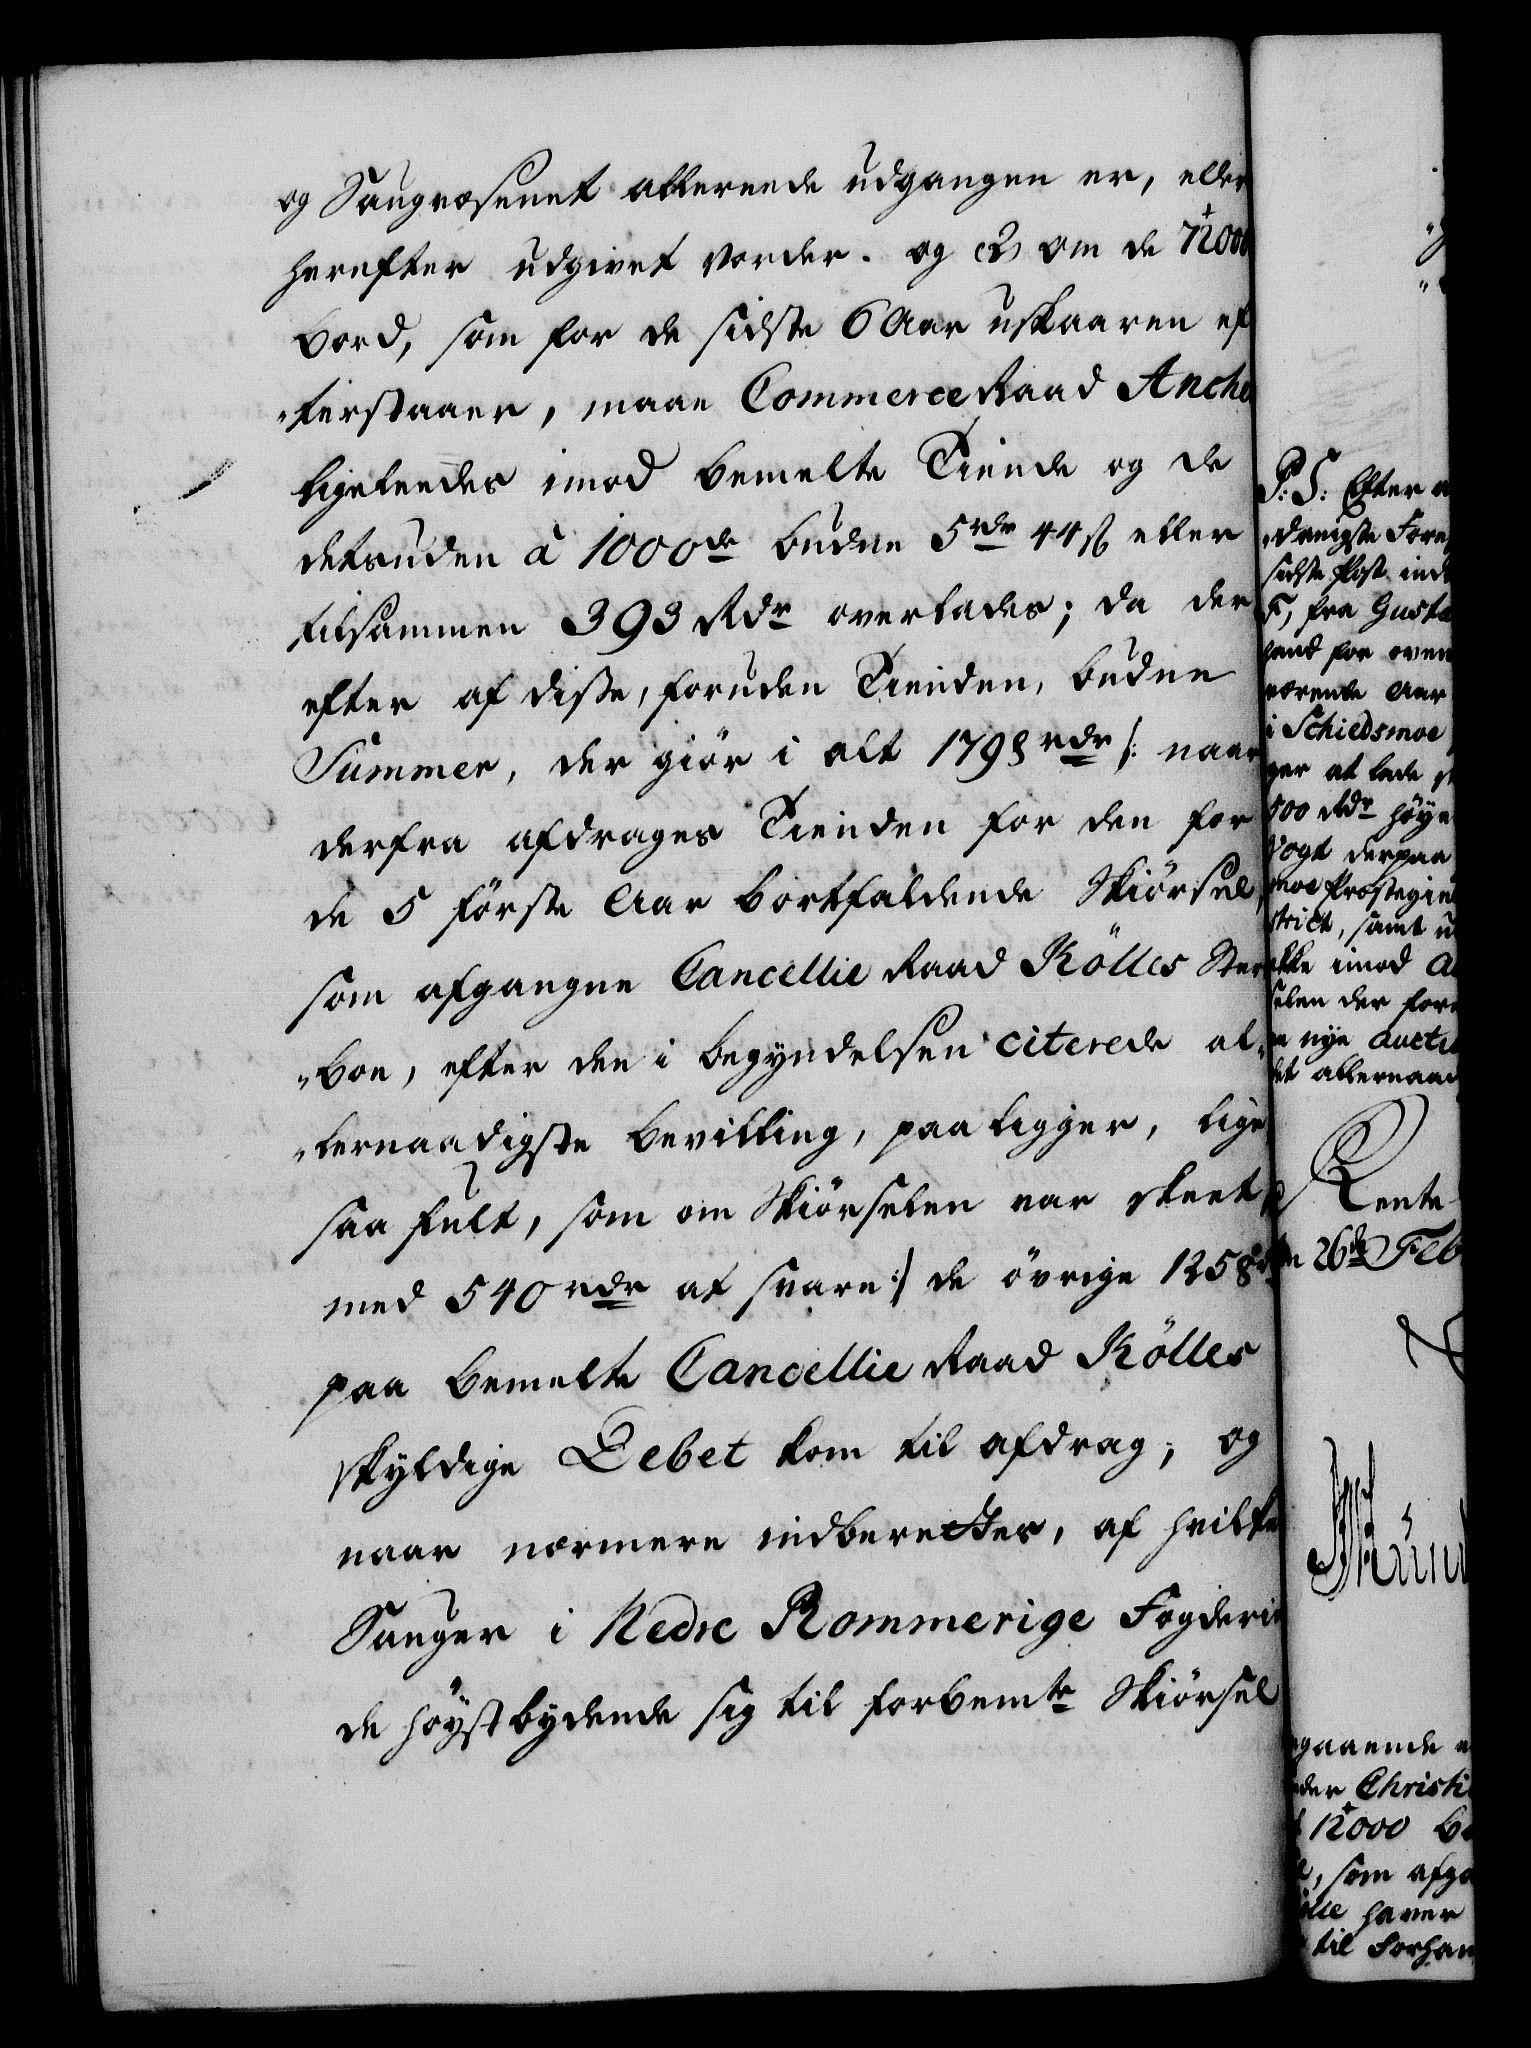 og Saugvæsenet allereede udgangen er, eller
herefter udgivet vorder. og 2) om de 72000
bord, som for de sidste 6 Aar uskaaren ef-
terstaaer, maae Commerce Raad Anche
ligeleedes imod bemelte Tiende og de
desuden à 1000de budne 5 rdr 44 s. eller
tilsammen 393 Rdr overlades; da der
efter af disse, foruden Tienden, budne
Summer, der giør i alt 1798 rdr /: naar
derfra afdrages Tienden for den for
de 5 første Aar bortfaldende Skiørsel,
som afgangne Cancellie Raad Kölles Ster-
boe, efter den i begyndelsen citerede al-
lernaadigste bevilling, paa ligger, lige
saa fult, som om Skiørselen var skeet,
med 540 rdr at svare :/ de øvrige 1258 rdr
paa bemelte Cancellie Raad Kölles
skyldige Debet kom til afdrag; og
naar nærmere indberettes, af hvilke
Sauger i Nedre Rommerige Fogderie
de høystbydende sig til forbemte Skiørsel
P: S: Efter a
drigste Fore
sidste Post ind
fra Gusta
for oven
værende Aar
i Schiedsmoe
ger at lade
500 Rdr høye
Vogt derpaa
moe Præstegie
strict, samt u
ikke imod A
selen der for
nye Aucti
et allernaad
Rente
26de Feb
gaaende
der Christi
12000 b
som afga
ölle haver
til Forhan